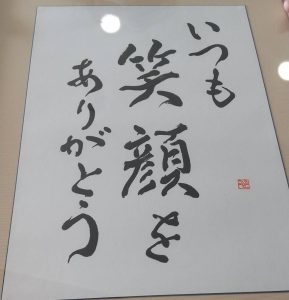 いつも
笑顔を
ありがとう